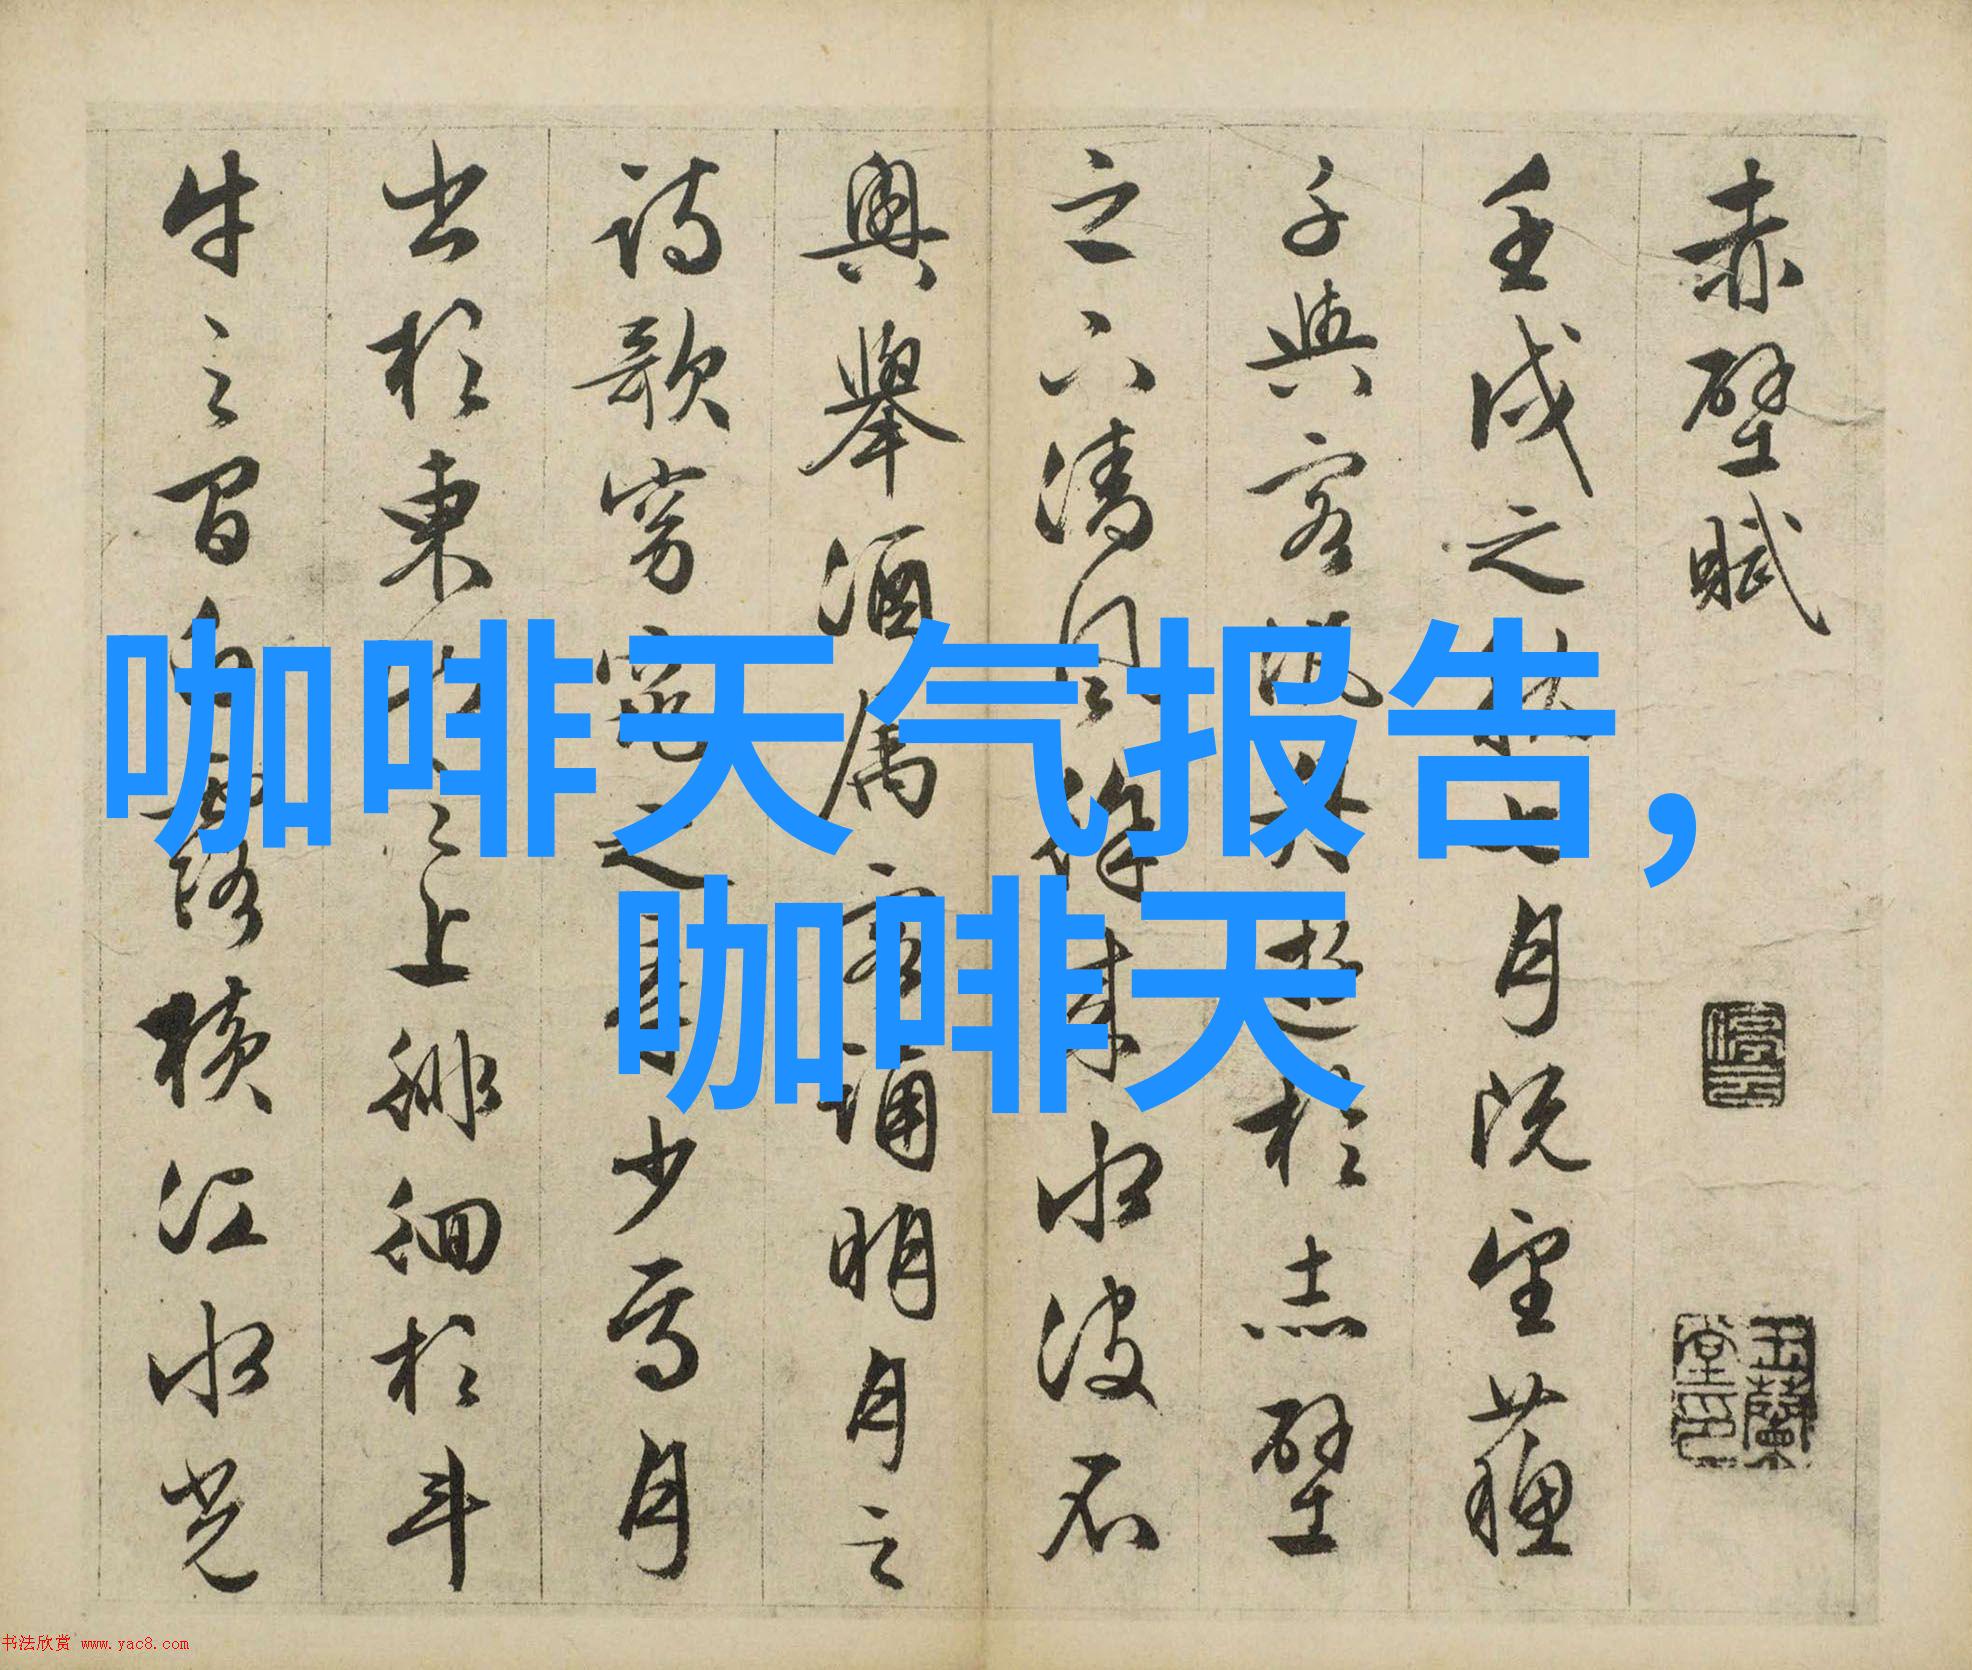 赤壁賦
壬戌之秋七月既望蘓
子與客汎舟遊於赤壁
之下清風徐来水波不
興舉酒属客誦明月之
詩歌窈窕之章少焉月
出於東山之上徘徊於斗
牛之間白露橫江水光
停雲
玉蘭堂印
咖啡天气报告，
咖啡天
书法欣赏 www.yac8.com